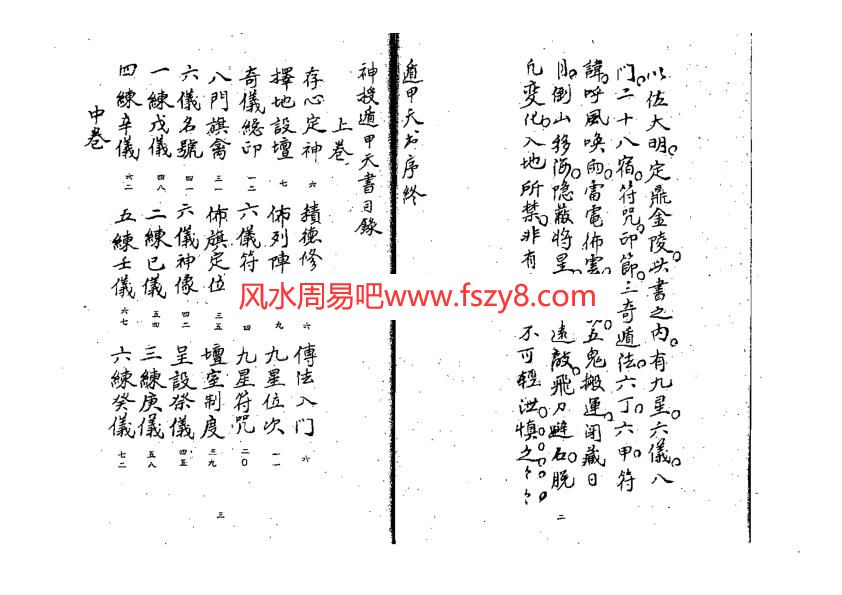 以佐大明定鼎金陵此書之内有九星六儀八
门二十八宿符咒印節三奇遁法六丁六甲符
諱呼風喚雨雷電佈雲五鬼搬運闭藏日
月倒山移海隐蔽將星遠敵飛刀避石脱
凡變化入地所禁非有不可輕泄慎之〻〻
二
遁甲天书序终
神授遁甲天書目錄
上卷
存心定神 六 積德修 六 傳法入门 六
擇地設壇 七 佈列陣 九 九星位次 一一
奇儀總印 一二 六儀符 四 九星符咒 二〇
八門旗禽 三一 佈旗定位 三五 壇室制度 三九
六儀名號 四一 六儀神像 四二 呈設祭儀 四五
一練戊儀 四八 二練已儀 五四 三練庚儀 五八
四練辛儀 六二 五練壬儀 六七 六練癸儀 七二
中卷
三
风水周易吧www.fszy8.com